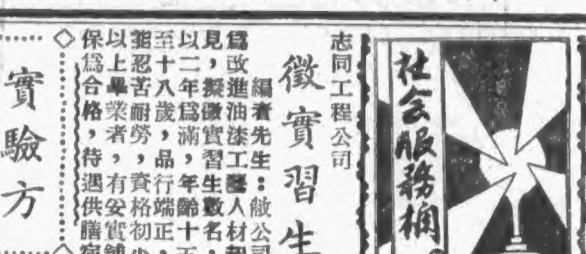 社会服務欄
志同工程公司
徵實習生
編者先生：敝公司
爲改進油漆工藝人材起
見，擬徵實習生數名，
以二年爲滿，年齡十五
至十八歲，品行端正，
能忍苦耐勞，資格初小
以上畢業者，有妥實舖
保爲合格，待遇供膳宿
實驗方